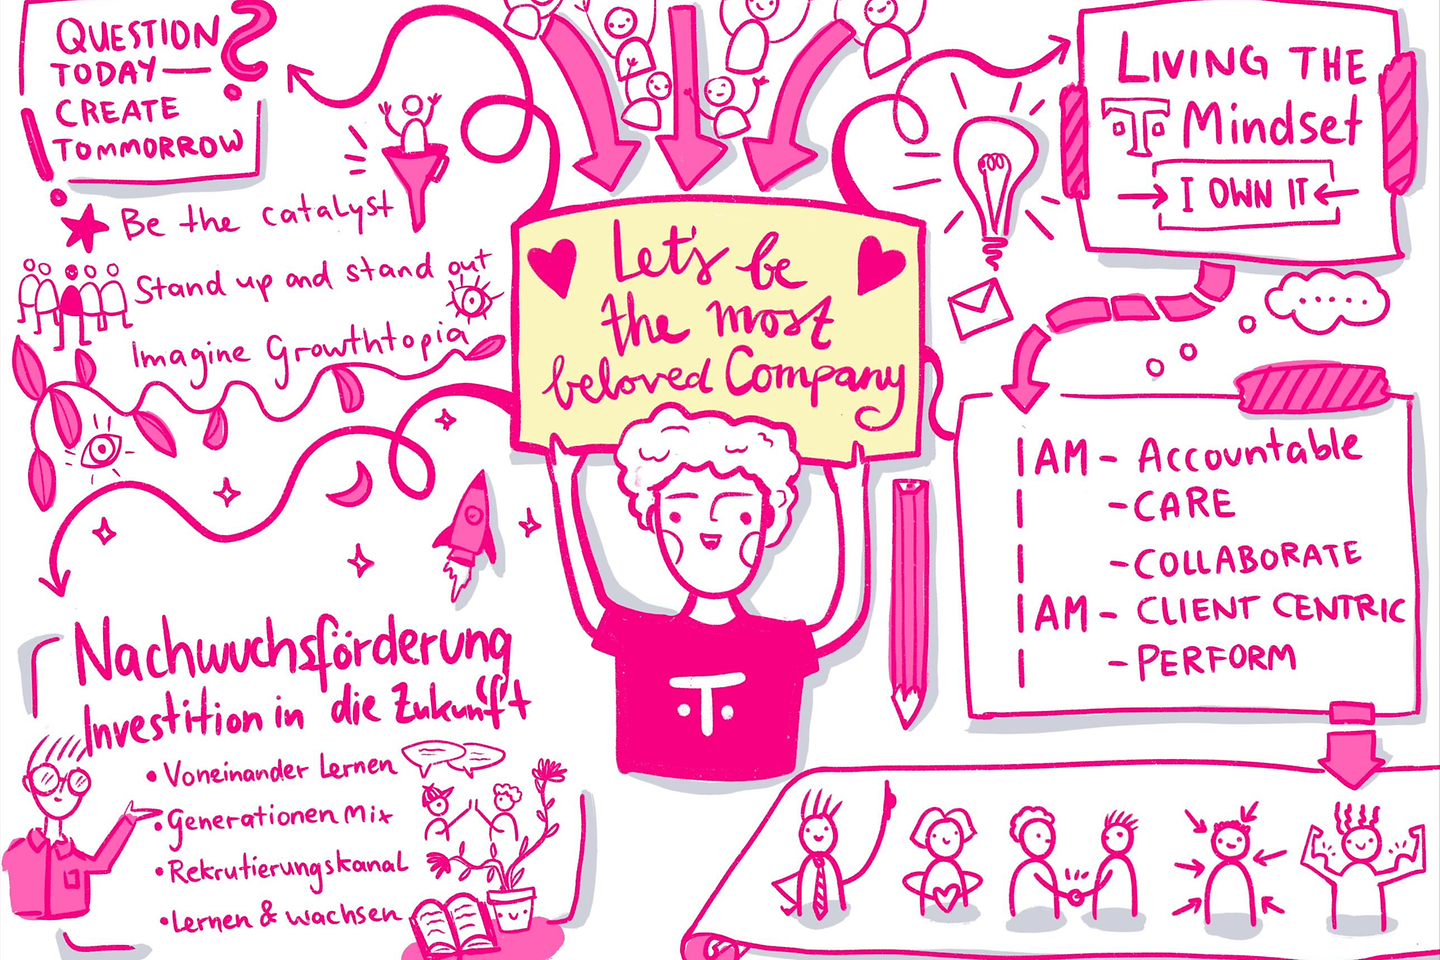 QUESTION
TODAY—
CREATE
TOMMORROW
?
Be the catalyst
Stand up and stand out
Imagine Growthtopia
Let's be
the most
beloved Company
LIVING THE
T Mindset
I OWN IT
I AM - Accountable
I - CARE
I - COLLABORATE
I AM - CLIENT CENTRIC
I - PERFORM
Nachwuchsförderung
Investition in die Zukunft
• Voneinander Lernen
• Generationen Mix
• Rekrutierungskanal
• Lernen & wachsen
T